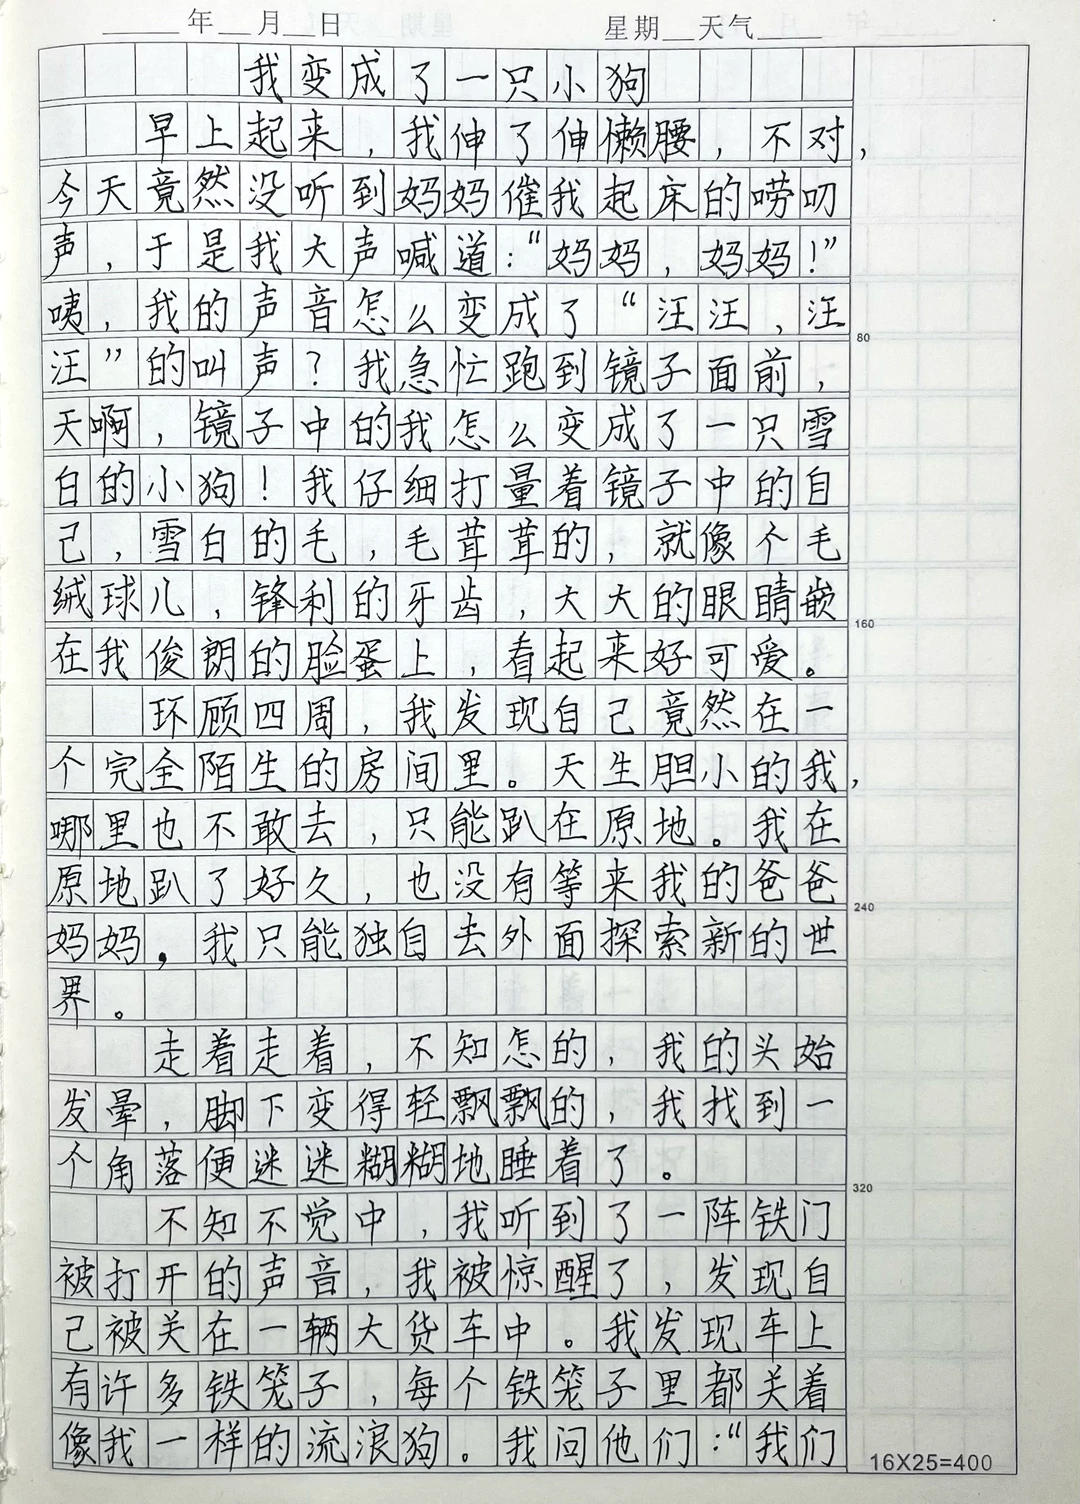 年 月 日 星期 天气
我变成了一只小狗
早上起来，我伸了伸懒腰，不对，
今天竟然没听到妈妈催我起床的唠叨
声，于是我大声喊道：“妈妈，妈妈！”
咦，我的声音怎么变成了“汪汪，汪
汪”的叫声？我急忙跑到镜子面前，
天啊，镜子中的我怎么变成了一只雪
白的小狗！我仔细打量着镜子中的自
己，雪白的毛，毛茸茸的，就像个毛
绒球儿，锋利的牙齿，大大的眼睛嵌
在我俊朗的脸蛋上，看起来好可爱。
环顾四周，我发现自己竟然在一
个完全陌生的房间里。天生胆小的我，
哪里也不敢去，只能趴在原地。我在
原地趴了好久，也没有等来我的爸爸
妈妈，我只能独自去外面探索新的世
界。
走着走着，不知怎的，我的头始
发晕，脚下变得轻飘飘的，我找到一
个角落便迷迷糊糊地睡着了。
不知不觉中，我听到了一阵铁门
被打开的声音，我被惊醒了，发现自
己被关在一辆大货车中。我发现车上
有许多铁笼子，每个铁笼子里都关着
像我一样的流浪狗。我问他们：“我们
80
160
240
320
16X25=400